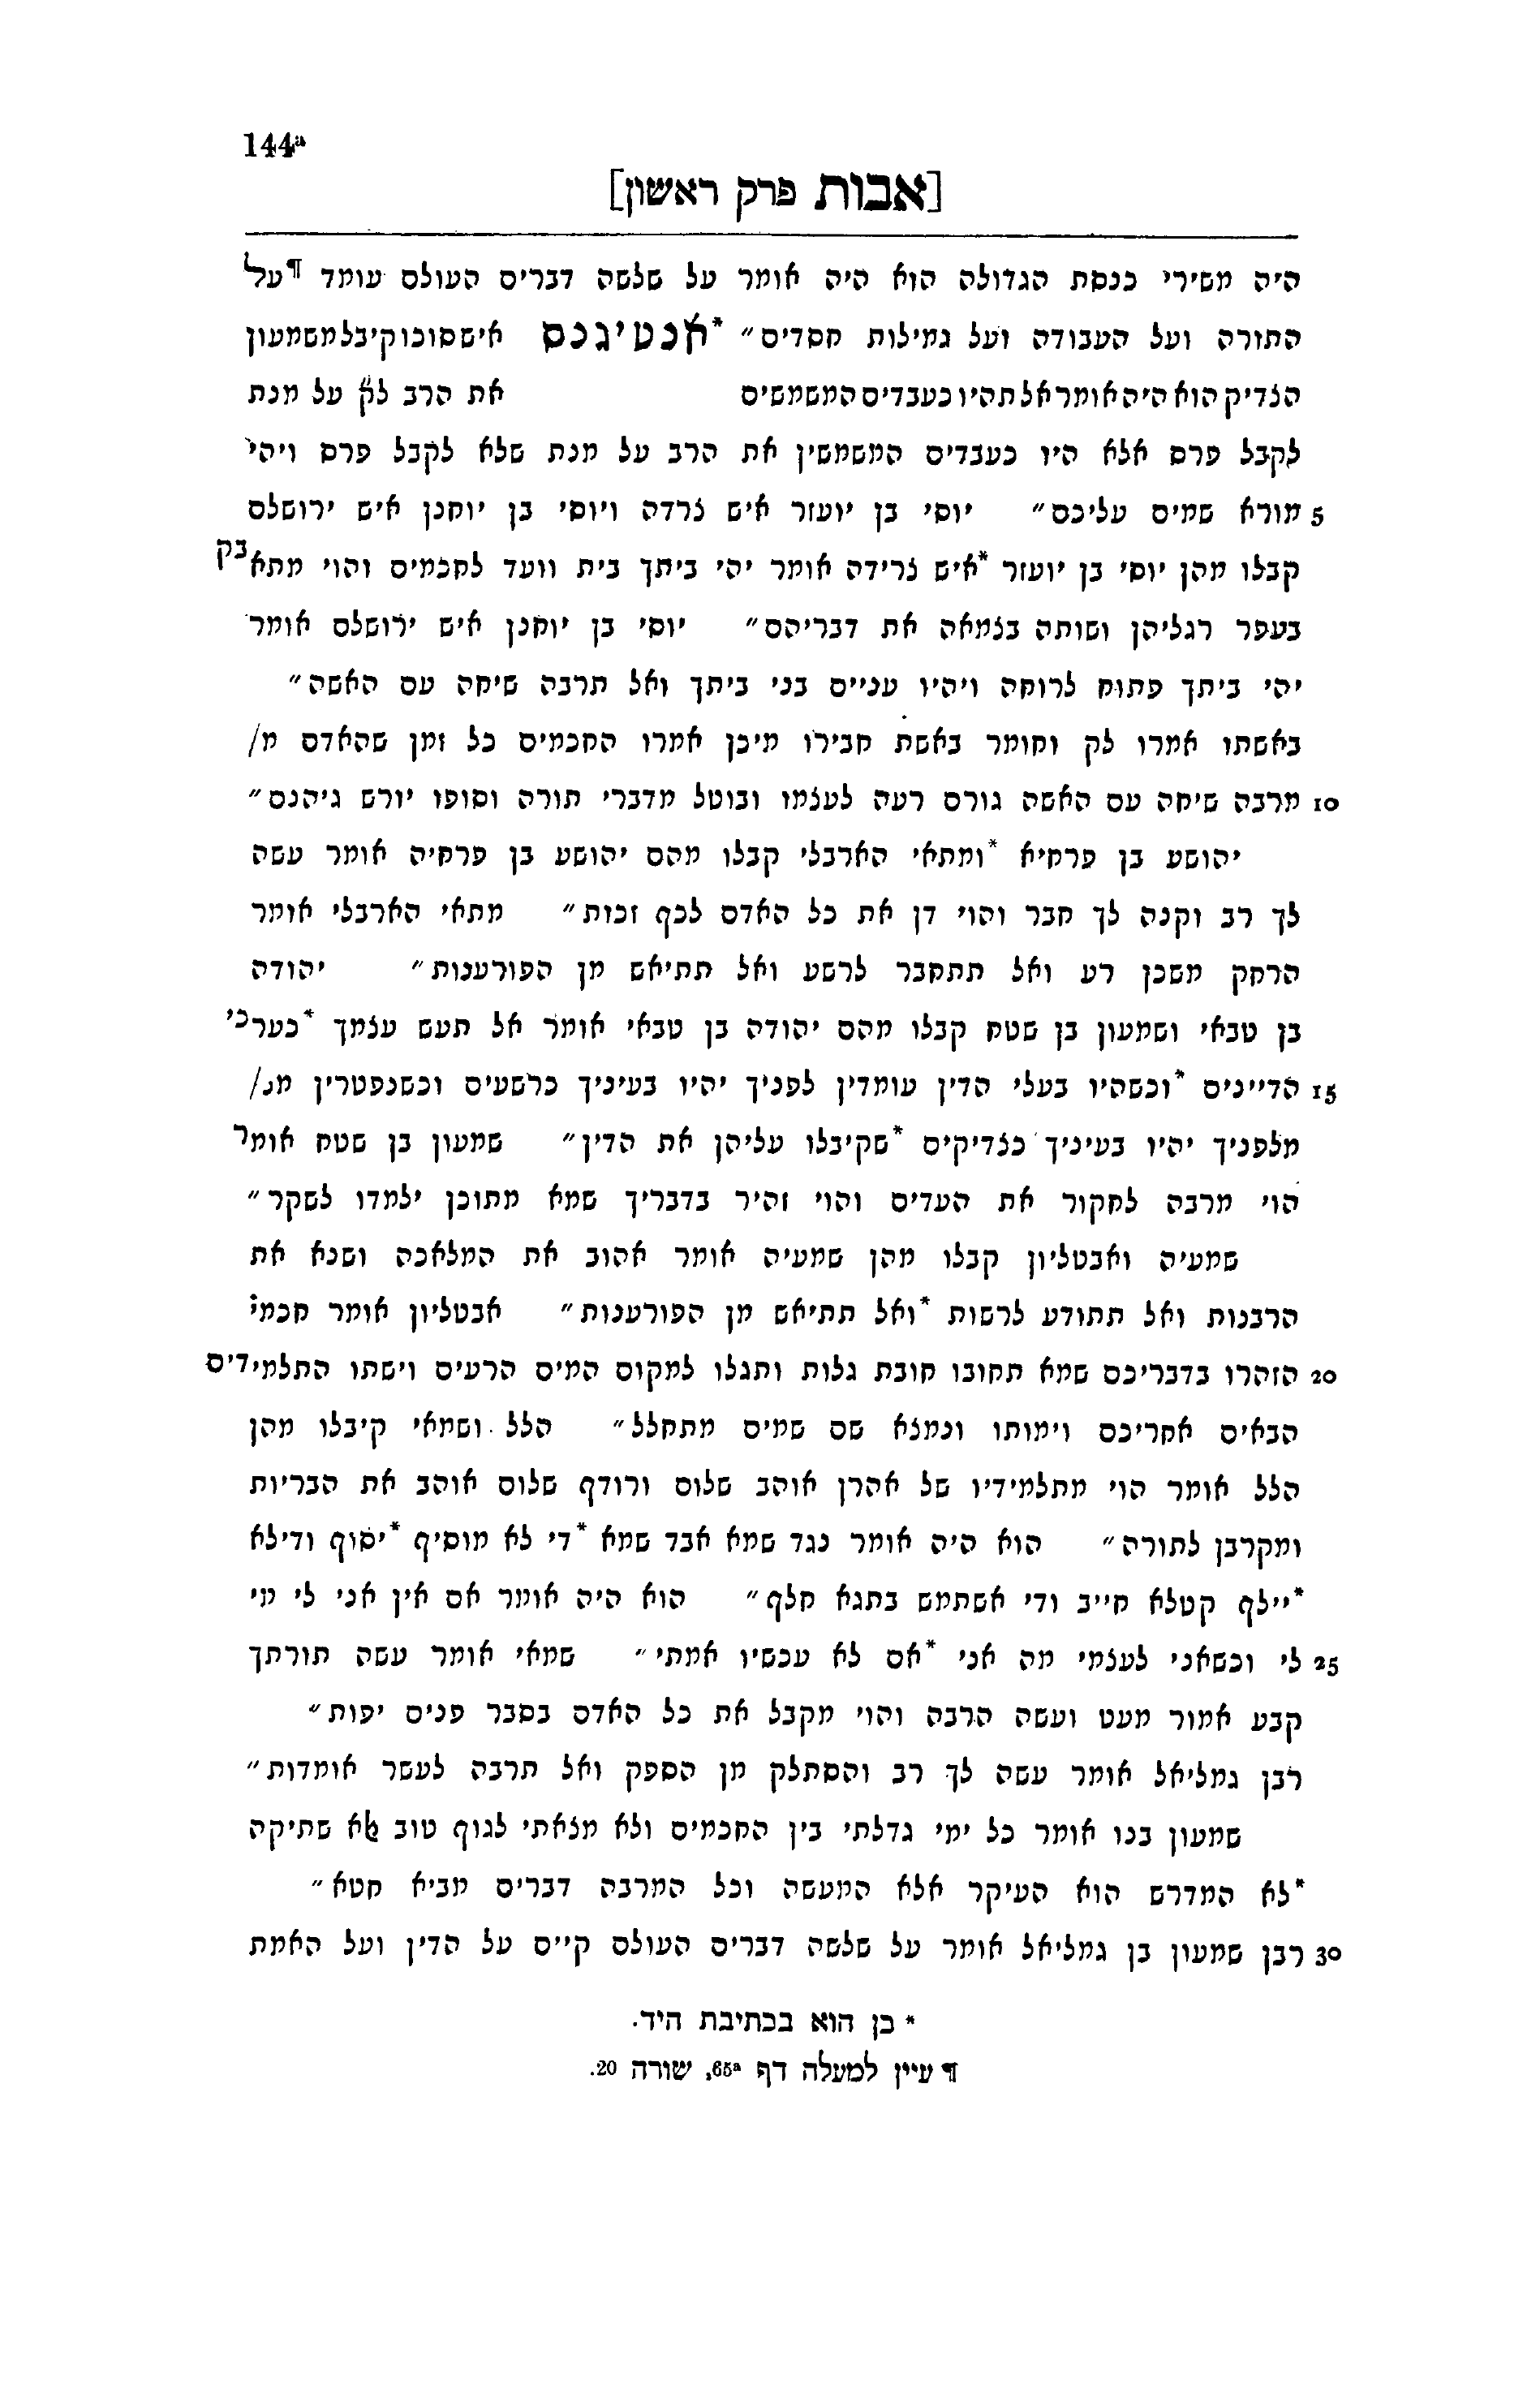 144ª
[אבות פרק ראשון]
היה משירי כנסת הגדולה הוא היה אומר על שלשה דברים העולם עומד ¶על
התורה ועל העבודה ועל גמילות חסדים״ *אנטיגנס אישסוכוקיבלמשמעון
הצדיקהואהיהאומראלתהיוכעבדיםהמשמשים את הרב לק״ על מנת
לקבל פרס אלא היו כעבדים המשמשין את הרב על מנת שלא לקבל פרס ויהי
5 מורא שמים עליכם״ יוסי בן יועזר איש צרדה ויוסי בן יוחנן איש ירושלם
קבלו מהן יוסי בן יועזר *איש צרידה אומר יהי ביתך בית וועד לחכמים והוי מתאבק
בעפר רגליהן ושותה בצמאה את דבריהם״ יוסי בן יוחנן איש ירושלם אומר
יהי ביתך פתוח לרוחה ויהיו עניים בני ביתך ואל תרבה שיחה עם האשה״
באשתו אמרו לק וחומר באשת חבירו מיכן אמרו החכמים כל זמן שהאדם מ/
10 מרבה שיחה עם האשה גורם רעה לעצמו ובוטל מדברי תורה וסופו יורש גיהנם״
יהושע בן פרחיא *ומתאי הארבלי קבלו מהם יהושע בן פרחיה אומר עשה
לך רב וקנה לך חבר והוי דן את כל האדם לכף זכות״ מתאי הארבלי אומר
הרחק משכן רע ואל תתחבר לרשע ואל תתיאש מן הפורענות״ יהודה
בן טבאי ושמעון בן שטח קבלו מהם יהודה בן טבאי אומר אל תעש עצמך *כערכי
15 הדיינים *וכשהיו בעלי הדין עומדין לפניך יהיו בעיניך כרשעים וכשנפטרין מנ/
מלפניך יהיו בעיניך כצדיקים *שקיבלו עליהן את הדין״ שמעון בן שטח אומר
הוי מרבה לחקור את העדים והוי זהיר בדבריך שמא מתוכן ילמדו לשקר״
שמעיה ואבטליון קבלו מהן שמעיה אומר אהוב את המלאכה ושנא את
הרבנות ואל תתודע לרשות *ואל תתיאש מן הפורענות״ אבטליון אומר חכמי
20 הזהרו בדבריכם שמא תחובו חובת גלות ותגלו למקום המים הרעים וישתו התלמידים
הבאים אחריכם וימותו ונמצא שם שמים מתחלל״ הלל ושמאי קיבלו מהן
הלל אומר הוי מתלמידיו של אהרן אוהב שלום ורודף שלום אוהב את הבריות
ומקרבן לתורה״ הוא היה אומר נגד שמא אבד שמא *די לא מוסיף *יסוף ודילא
*יילף קטלא חייב ודי אשתמש בתגא חלף״ הוא היה אומר אם אין אני לי מי
25 לי וכשאני לעצמי מה אני *אם לא עכשיו אמתי״ שמאי אומר עשה תורתך
קבע אמור מעט ועשה הרבה והוי מקבל את כל האדם בסבר פנים יפות״
רבן גמליאל אומר עשה לך רב והסתלק מן הספק ואל תרבה לעשר אומדות״
שמעון בנו אומר כל ימי גדלתי בין החכמים ולא מצאתי לגוף טוב אלא שתיקה
*לא המדרש הוא העיקר אלא המעשה וכל המרבה דברים מביא חטא״
30 רבן שמעון בן גמליאל אומר על שלשה דברים העולם קיים על הדין ועל האמת
* כן הוא בכתיבת היד.
¶ עיין למעלה דף 65ª, שורה 20.